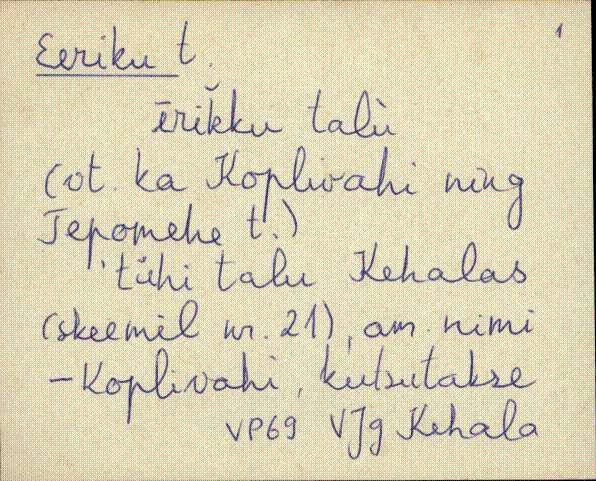 1
Eeriku t.
ēri̮k̆ku talù
(vt. ka Koplivahi ning
Tepomehe t.)
'tühi talu Kehalas
(skeemil nr. 21), am. nimi
– Koplivahi, kutsutakse
VP69 VJg Kehala